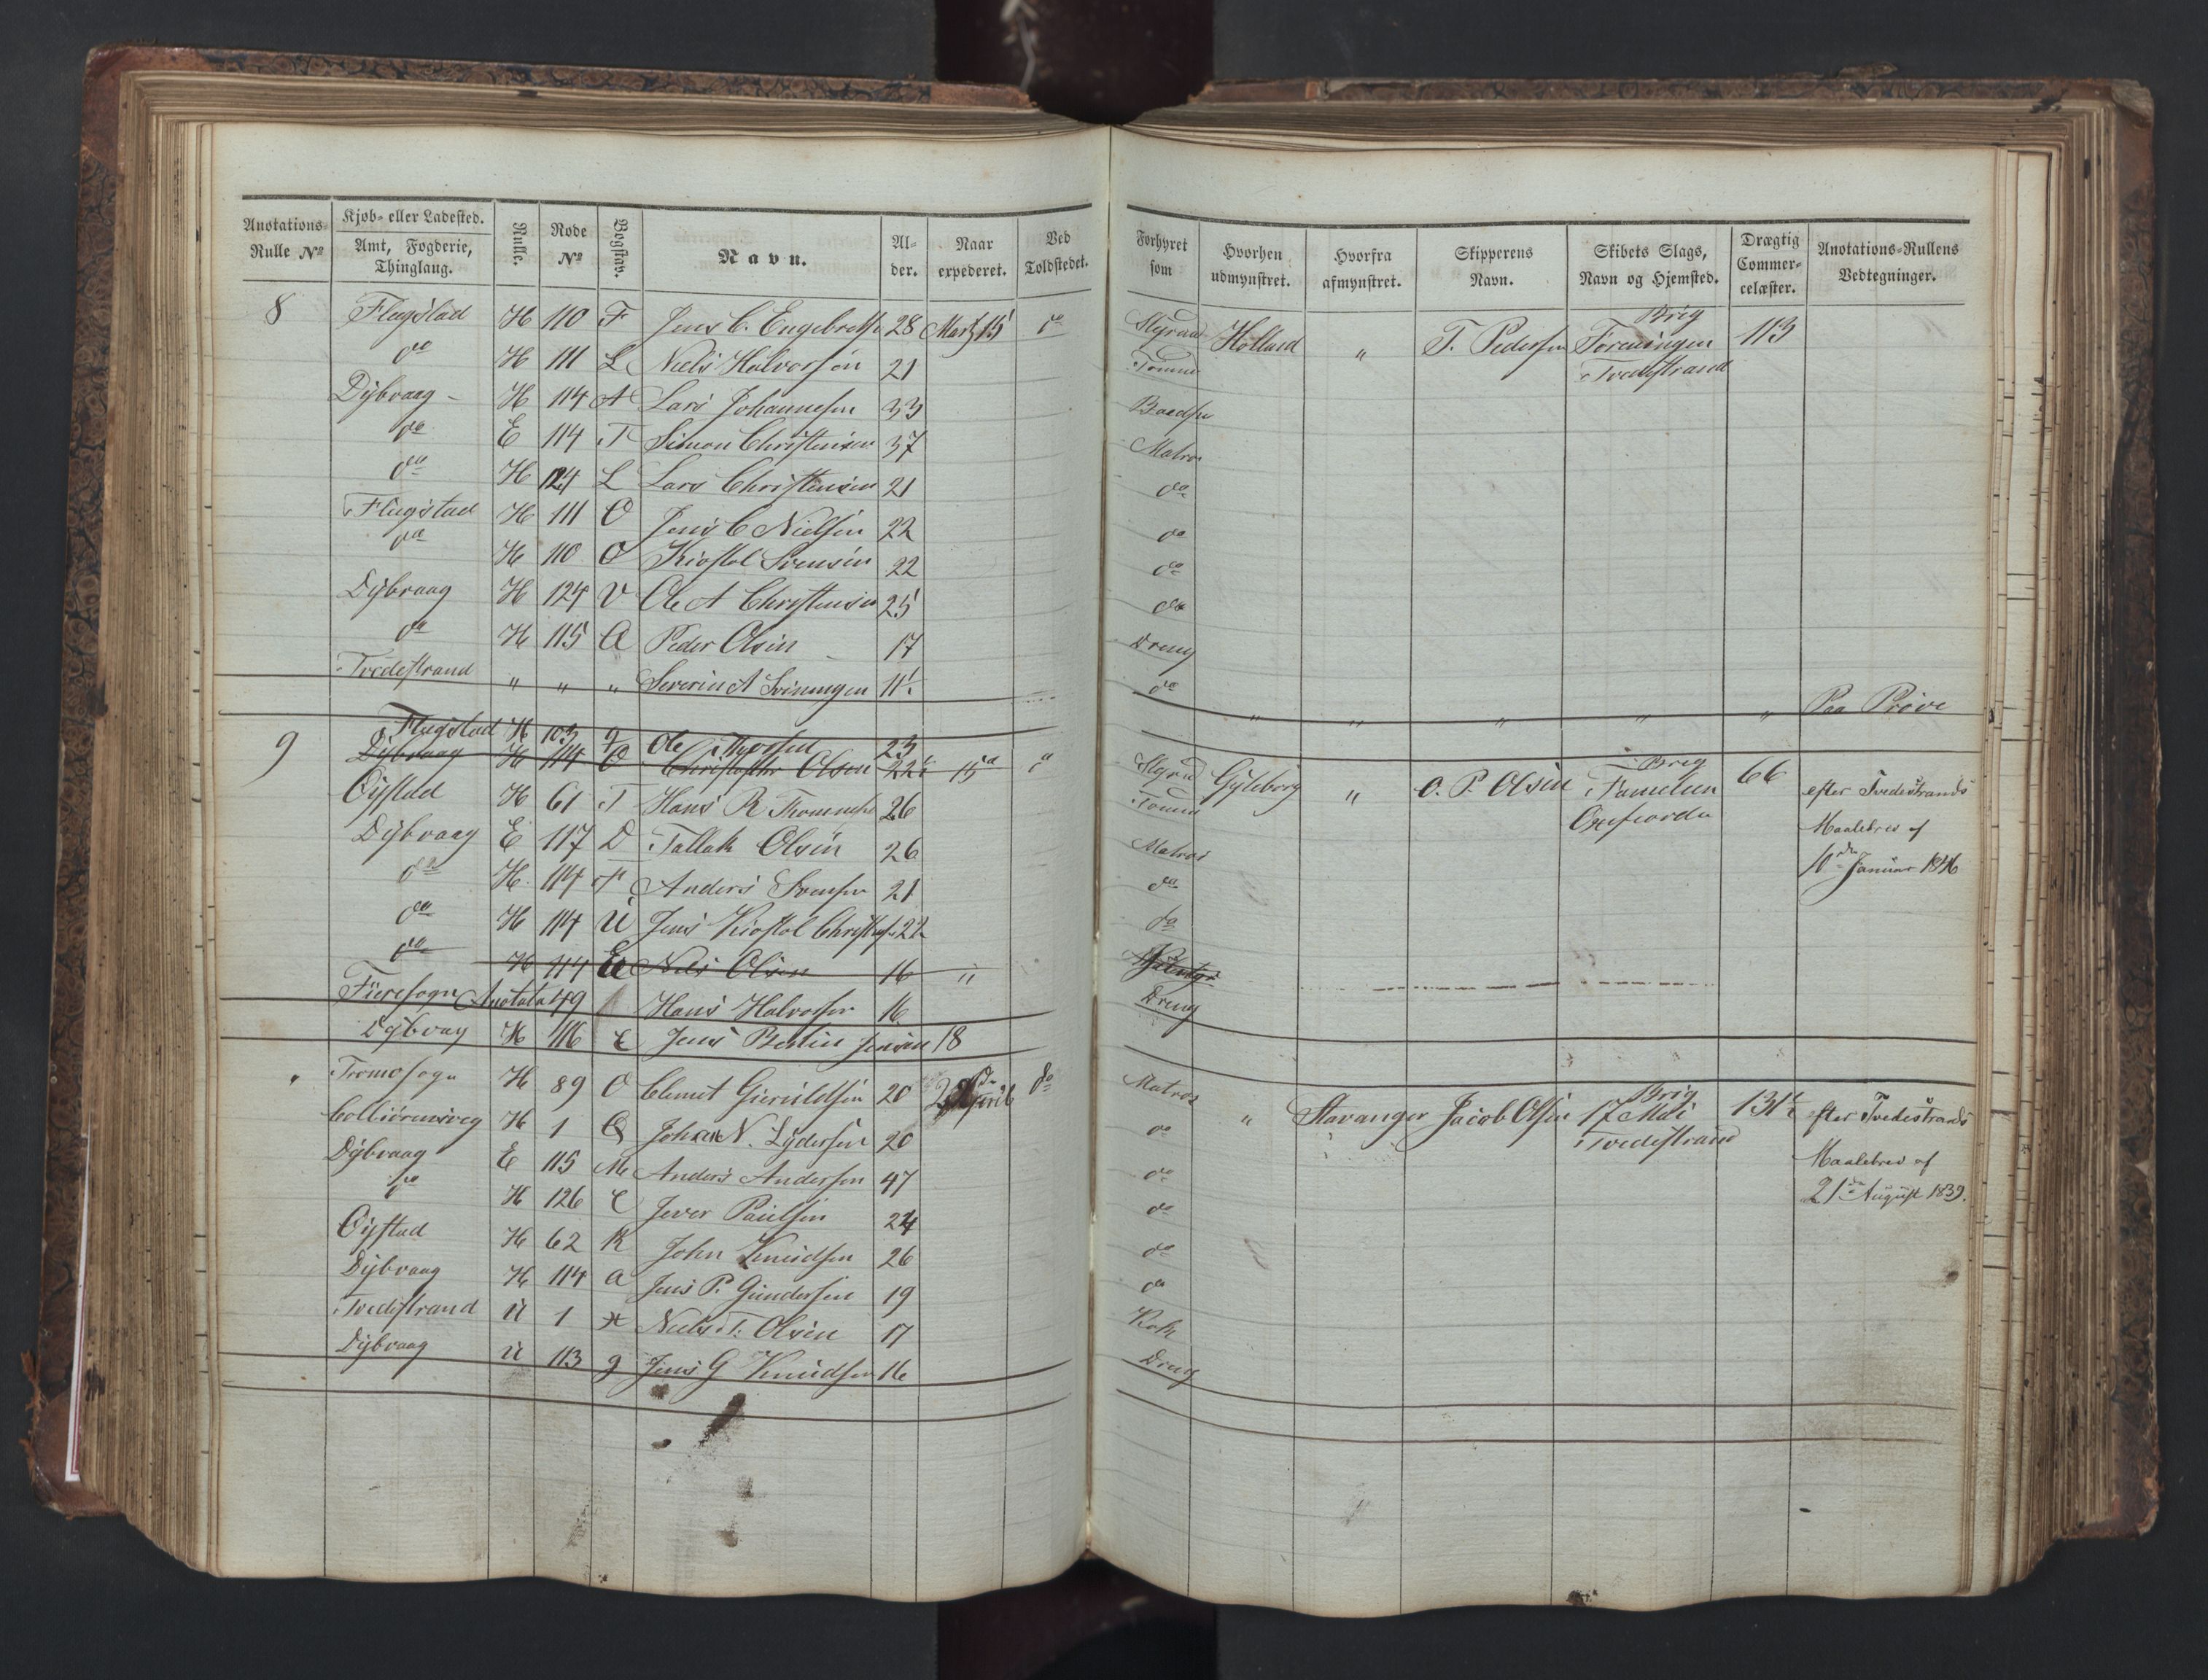 Anotations- Rulle № | Kjøb- eller Ladested. Amt, Fogderie, Thinglaug. | Rulle. | Rode № | Bogstav. | Navn. | Al- der. | Naar expederet. | Ved Toldstedet. | Forhyret som | Hvorhen udmynstret. | Hvorfra afmynstret. | Skipperens Navn. | Skibets Slags, Navn og Hjemsted. | Drægtig Commer- celæster. | Anotations-Rullens Vedtegninger.
8 Flagstad H 110 F Jens C. Engebretsen 28 Marts 15 do Styrmd Holland " T. Pedersen Brig Foreningen Tvedestrand 113
do H 111 L Niels Halvorsen 21 Tømmd
Dybvaag - H 114 A Lars Johannesen 33 Baadsm
do E 114 T Simon Christensen 37 Matros
do H 124 L Lars Christensen 21 do
Flagstad H 111 O Jens C Nielsen 22 do
do H 110 O Kiostol Svensen 22 do
Dybvaag H 124 V Ole A Christensen 25 do
do H 115 A Peder Olsen 17 Dreng
Tvedestrand " " " Severin A Svinungen 11½ do " " " " " Paa Prøve
Flagstad H 103 g Ole 23
9 Dybvaag H 114 O Christopher Olsen 22½ 15 Styrmd Gøteborg " O. P. Olsen Brig Familien Oxefiorden 66 efter Tvedestrands
Oijstad H 61 T Hans R Thommesen 26 Tømmd Maalebrev af
Dybvaag E 117 D Tallak Olsen 26 Matros 10de Januar 1846
do H 114 F Anders Svensen 21 do
do H 114 U Jens Kiostol Christens 22 do
do H 114 E Niels Olsen 16 "
Fieresogn Anotata 49 Hans Halvorsen 16 Dreng
Dybvag H 116 E Jens Bertin Jensen 18
Tromøsogn H 89 O Clemet Gieruldsen 20 2 April do Matros " Stavanger Jacob Olsen Brig 17 Mai Tvedestrand 131½ efter Tvedestrands
H 1 Q Johan N. Lydersen 20 do
Dybvaag E 115 M Anders Andersen 47 do Maalebrev af
do H 126 E Jver Paulsen 24 do 21de August 1839.
Oijstad H 62 R John Knudsen 26 do
Dybvaag H 114 a Jens P. Gundersen 19 do
Tvedestrand U 1 Niels T. Olsen 17 Kok
Dybvaag U 113 g Jens G Knudsen 16 Dreng